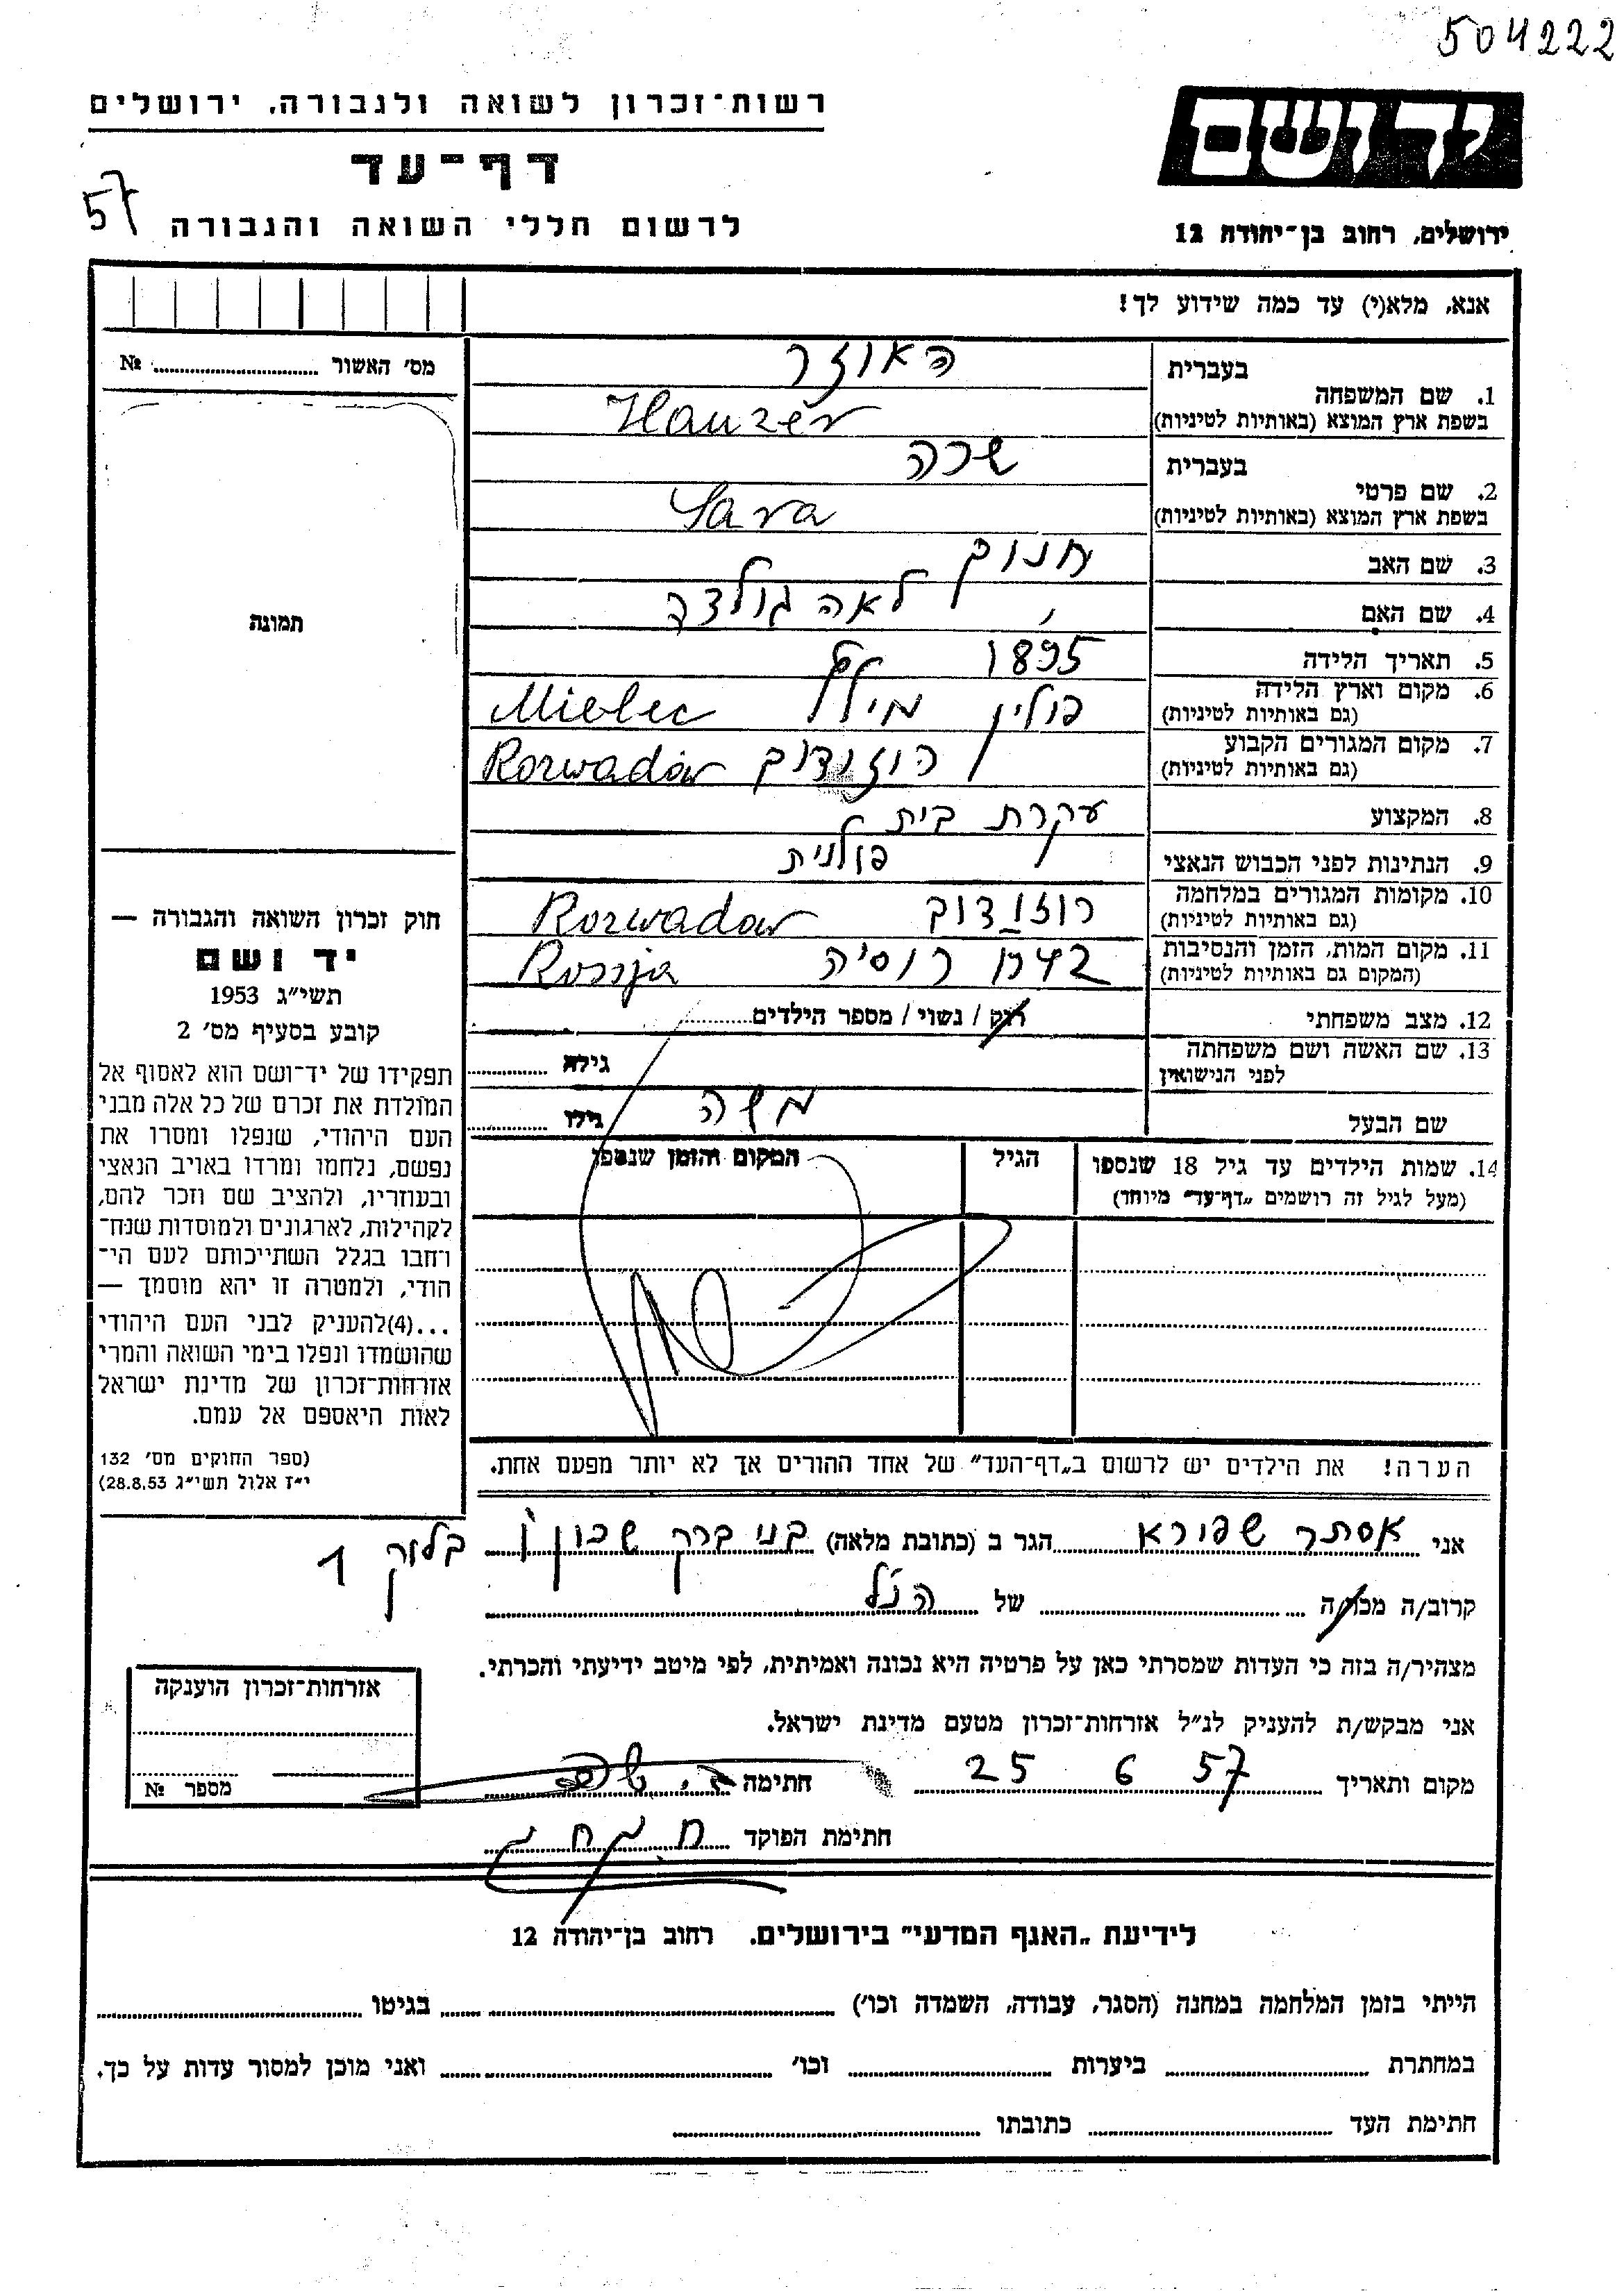 504222
רשות־זכרון לשואה ולגבורה, ירושלים
יד ושם
דף־עד
57
לרשום חללי השואה והגבורה
ירושלים, רחוב בן־יהודה 12
אנא, מלא(י) עד כמה שידוע לך!
מס׳ האשור ........ №
תמונה
בעברית האוזר
1. שם המשפחה
בשפת ארץ המוצא (באותיות לטיניות) Hauzer
בעברית שרה
2. שם פרטי
בשפת ארץ המוצא (באותיות לטיניות) Sara
3. שם האב חנוך
4. שם האם לאה גולדה
5. תאריך הלידה 1895
6. מקום וארץ הלידה
(גם באותיות לטיניות) פולין Mielec
7. מקום המגורים הקבוע
(גם באותיות לטיניות) רוזודוב Rozwadów
8. המקצוע עקרת בית
9. הנתינות לפני הכבוש הנאצי פולנית
10. מקומות המגורים במלחמה
(גם באותיות לטיניות) רוזודוב Rozwadów
11. מקום המות, הזמן והנסיבות
(המקום גם באותיות לטיניות) רוסיה Rossja
12. מצב משפחתי רוק / נשוי / מספר הילדים........
13. שם האשה ושם משפחתה
לפני הנישואין גילה ........
שם הבעל משה גילו ........
14. שמות הילדים עד גיל 18 שנספו
(מעל לגיל זה רושמים „דף־עד” מיוחד)
הגיל
המקום והזמן שנספו
חוק זכרון השואה והגבורה —
יד ושם
תשי״ג 1953
קובע בסעיף מס׳ 2
תפקידו של יד־ושם הוא לאסוף אל
המולדת את זכרם של כל אלה מבני
העם היהודי, שנפלו ומסרו את
נפשם, נלחמו ומרדו באויב הנאצי
ובעוזריו, ולהציב שם וזכר להם,
לקהילות, לארגונים ולמוסדות שנח־
רחבו בגלל השתייכותם לעם הי־
הודי, ולמטרה זו יהא מוסמך —
...(4)להעניק לבני העם היהודי
שהושמדו ונפלו בימי השואה והמרי
אזרחות־זכרון של מדינת ישראל
לאות היאספם אל עמם.
(ספר החוקים מס׳ 132
י״ז אלול תשי״ג 28.8.53)
הערה! את הילדים יש לרשום ב„דף־העד” של אחד ההורים אך לא יותר מפעם אחת.
אני אסתר שפירא הגר ב (כתובת מלאה) בני ברק שכון ו בלוק 1
קרוב/ה מכר/ה ........ של הנ״ל
מצהיר/ה בזה כי העדות שמסרתי כאן על פרטיה היא נכונה ואמיתית, לפי מיטב ידיעתי והכרתי.
אני מבקש/ת להעניק לנ״ל אזרחות־זכרון מטעם מדינת ישראל.
מקום ותאריך 57 6 25 חתימה
חתימת הפוקד
אזרחות־זכרון הוענקה
מספר №
לידיעת „האגף המדעי” בירושלים. רחוב בן־יהודה 12
הייתי בזמן המלחמה במחנה (הסגר, עבודה, השמדה וכו׳) ........ בגיטו ........
במחתרת ........ ביערות ........ וכו׳ ........ ואני מוכן למסור עדות על כך.
חתימת העד ........ כתובתו ........